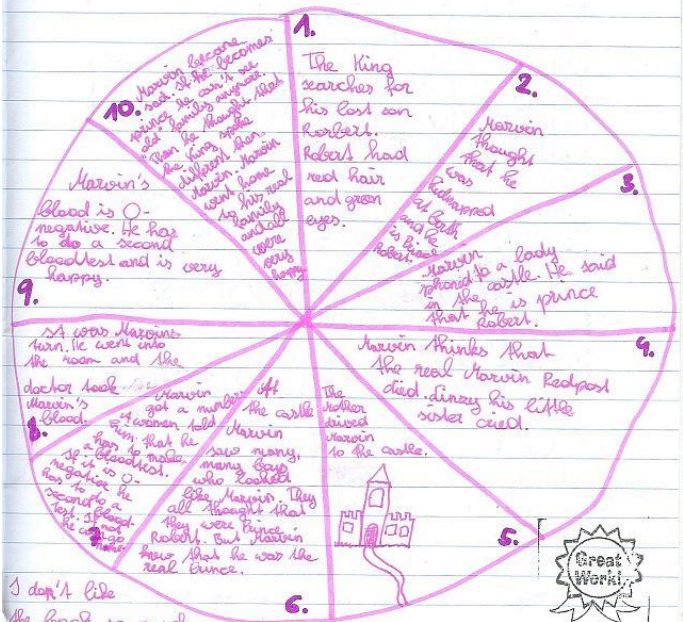 1.
The King
searches for
his lost son
Rorbert.
Robert had
red hair
and green
eyes.
2.
Marvin
thought
that he
was
kidnapped
at birth
and he
is Prince
Robert.
3.
Marvin
phoned to a lady
in the castle. He said
that he is prince
Robert.
4.
Marvin thinks that
the real Marvin Redpost
died. Linzy his little
sister cried.
5.
The
mother
drived
Marvin
to the castle.
6.
At
the castle
Marvin
saw many,
many boys
who looked
like Marvin. They
all thought that
they were Prince
Robert. But Marvin
knew that he was the
real Prince.
7.
Marvin
got a number.
A women told
him that he
has to make
a bloodtest.
If it is O-
negative he
has to
a
second
blood-
test. If not
he can go
home.
8.
It was Marvins
turn. He went into
the room and the
doctor took
Marvin's
blood.
9.
Marvin's
blood is O-
negative. He has
to do a second
bloodtest and is very
happy.
10.
Marvin became
sad. If he becomes
prince he can't see
old family anymore.
Then he thought that
the King spoke
different then
Marvin. Marvin
went home
to his real
family
and all
were
very
happy.
Great
Work!
I don't like
the book so much